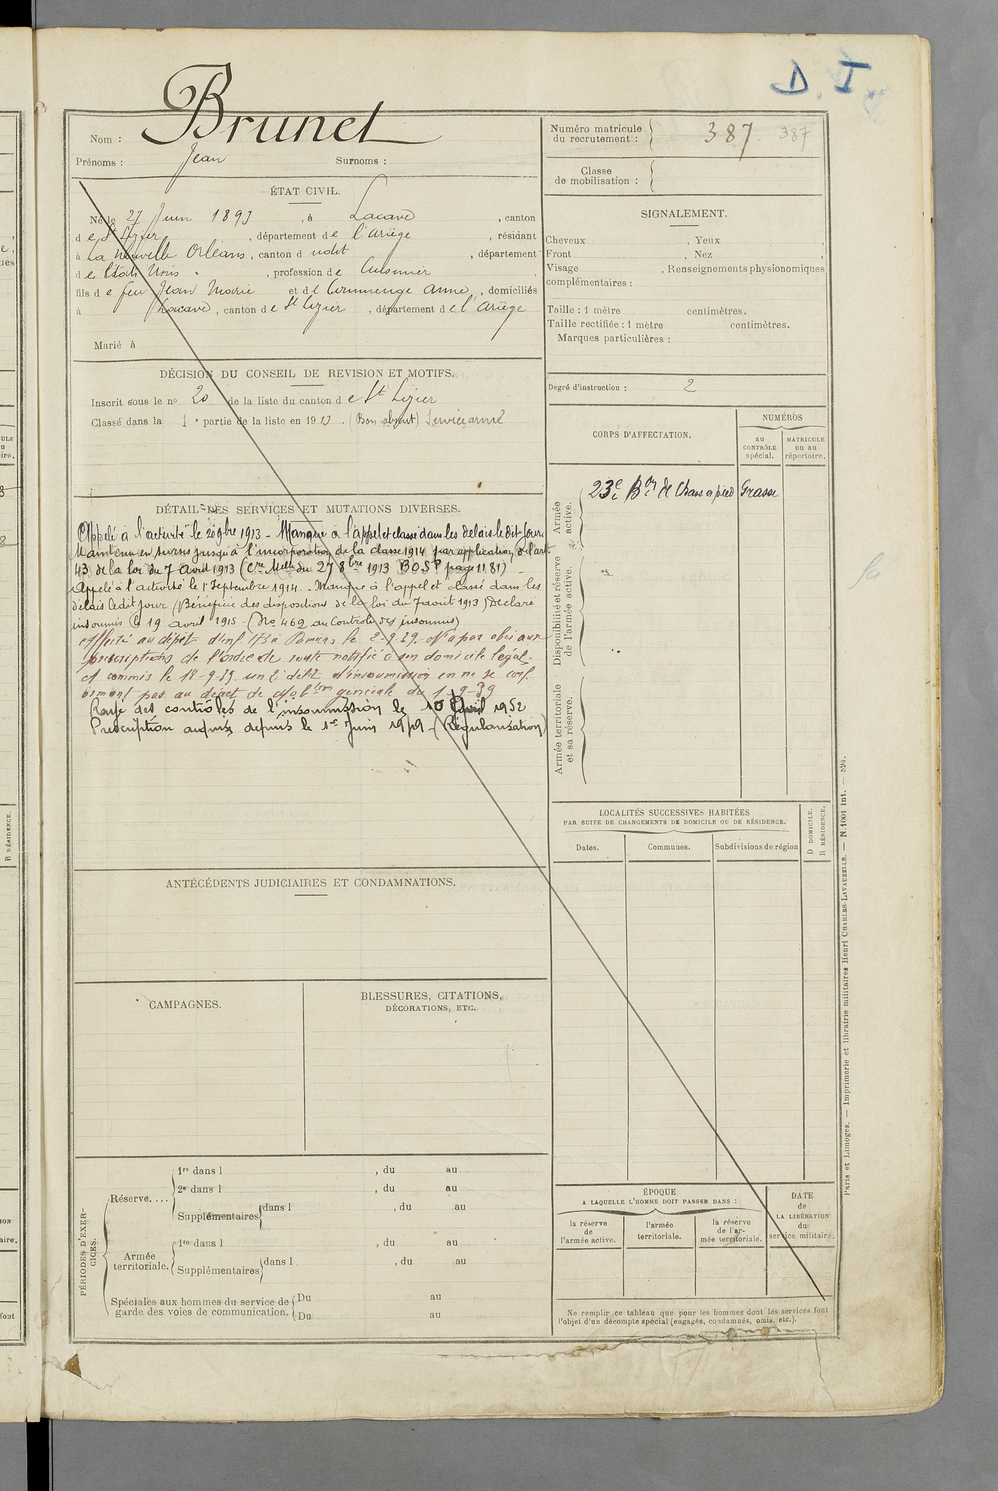 D. I
Nom : Brunet
Prénoms : Jean Surnoms :
Numéro matricule du recrutement : 387 387
Classe de mobilisation :
ÉTAT CIVIL.
Né le 27 Juin 1893, à Lacave, canton
de St Lizier, département de l'Ariège, résidant
à La Nouvelle Orléans, canton d udit, département
de Etats Unis, profession de Cuisinier
fils de feu Jean Marie et de Commenge Anne, domiciliés
à Lacave, canton de St Lizier, département de l'Ariège
Marié à
SIGNALEMENT.
Cheveux , Yeux ,
Front , Nez ,
Visage , Renseignements physionomiques
complémentaires :
Taille : 1 mètre centimètres.
Taille rectifiée : 1 mètre centimètres.
Marques particulières :
Degré d'instruction : 2
DÉCISION DU CONSEIL DE REVISION ET MOTIFS.
Inscrit sous le no 20 de la liste du canton de St Lizier
Classé dans la 1e partie de la liste en 1913. (Bon absent) Service armé
CORPS D'AFFECTATION.
NUMÉROS
au CONTRÔLE spécial.
MATRICULE ou au répertoire.
Armée active.
23e Bon de Chass à pied Grasse
Disponibilité et réserve de l'armée active.
Armée territoriale et sa réserve.
DÉTAIL DES SERVICES ET MUTATIONS DIVERSES.
Appelé à l'activité le 20 9bre 1913 - Manque à l'appel et classé dans les délais le dit Jour
Maintenu en sursis jusqu'à l'incorporation de la classe 1914 par application de l'art.
43 de la loi du 7 Août 1913 (Cre Mlle du 27 8bre 1913 BOSP page 1181)
Appelé à l'activité le 1er Septembre 1914. Manque à l'appel et classé dans les
délais le dit jour (Bénéficie des dispositions de la loi du 7 août 1913) Déclaré
insoumis le 19 avril 1915 - (No 469 au Contrôle des insoumis)
Affecté au dépôt d'inf. 173 à Pamiers le 2-9-39. N'a pas obéi aux
prescriptions de l'ordre de route notifié à son domicile légal
et commis le 18-9-39 un 2e délit d'insoumission en ne se conf
ormant pas au décret de Mobtion générale du 1-9-39
Rayé des contrôles de l'insoumission le 10 Avril 1952
Prescription acquise depuis le 1er Juin 1949 - (Régularisation)
LOCALITÉS SUCCESSIVES HABITÉES
PAR SUITE DE CHANGEMENTS DE DOMICILE OU DE RÉSIDENCE.
Dates.
Communes.
Subdivisions de région
D DOMICILE.
R RÉSIDENCE.
ANTÉCÉDENTS JUDICIAIRES ET CONDAMNATIONS.
CAMPAGNES.
BLESSURES, CITATIONS,
DÉCORATIONS, ETC.
PÉRIODES D'EXERCICES.
Réserve....
1re dans l , du au
2e dans l , du au
Supplémentaires dans l , du au
Armée territoriale.
1re dans l , du au
Supplémentaires dans l , du au
Spéciales aux hommes du service de garde des voies de communication.
Du au
Du au
ÉPOQUE
A LAQUELLE L'HOMME DOIT PASSER DANS :
la réserve de l'armée active.
l'armée territoriale.
la réserve de l'armée territoriale.
DATE de LA LIBÉRATION du service militaire.
Ne remplir ce tableau que pour les hommes dont les services font
l'objet d'un décompte spécial (engagés, condamnés, omis, etc.).
Paris et Limoges. — Imprimerie et librairie militaires Henri CHARLES-LAVAUZELLE. — N. 1001 int. — 894.